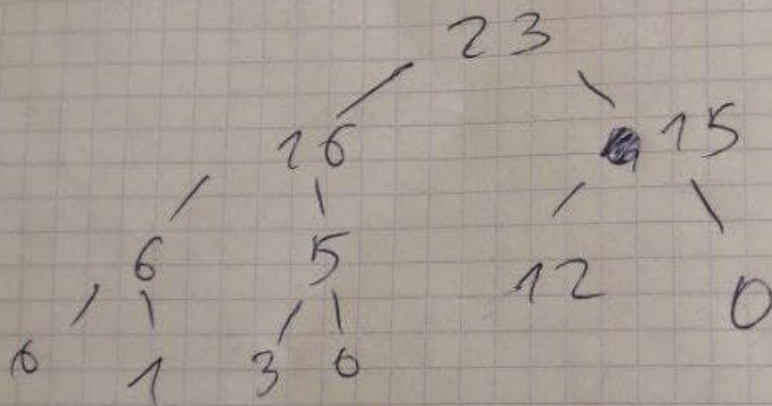 23
16 15
6 5 12 0
6 1 3 0